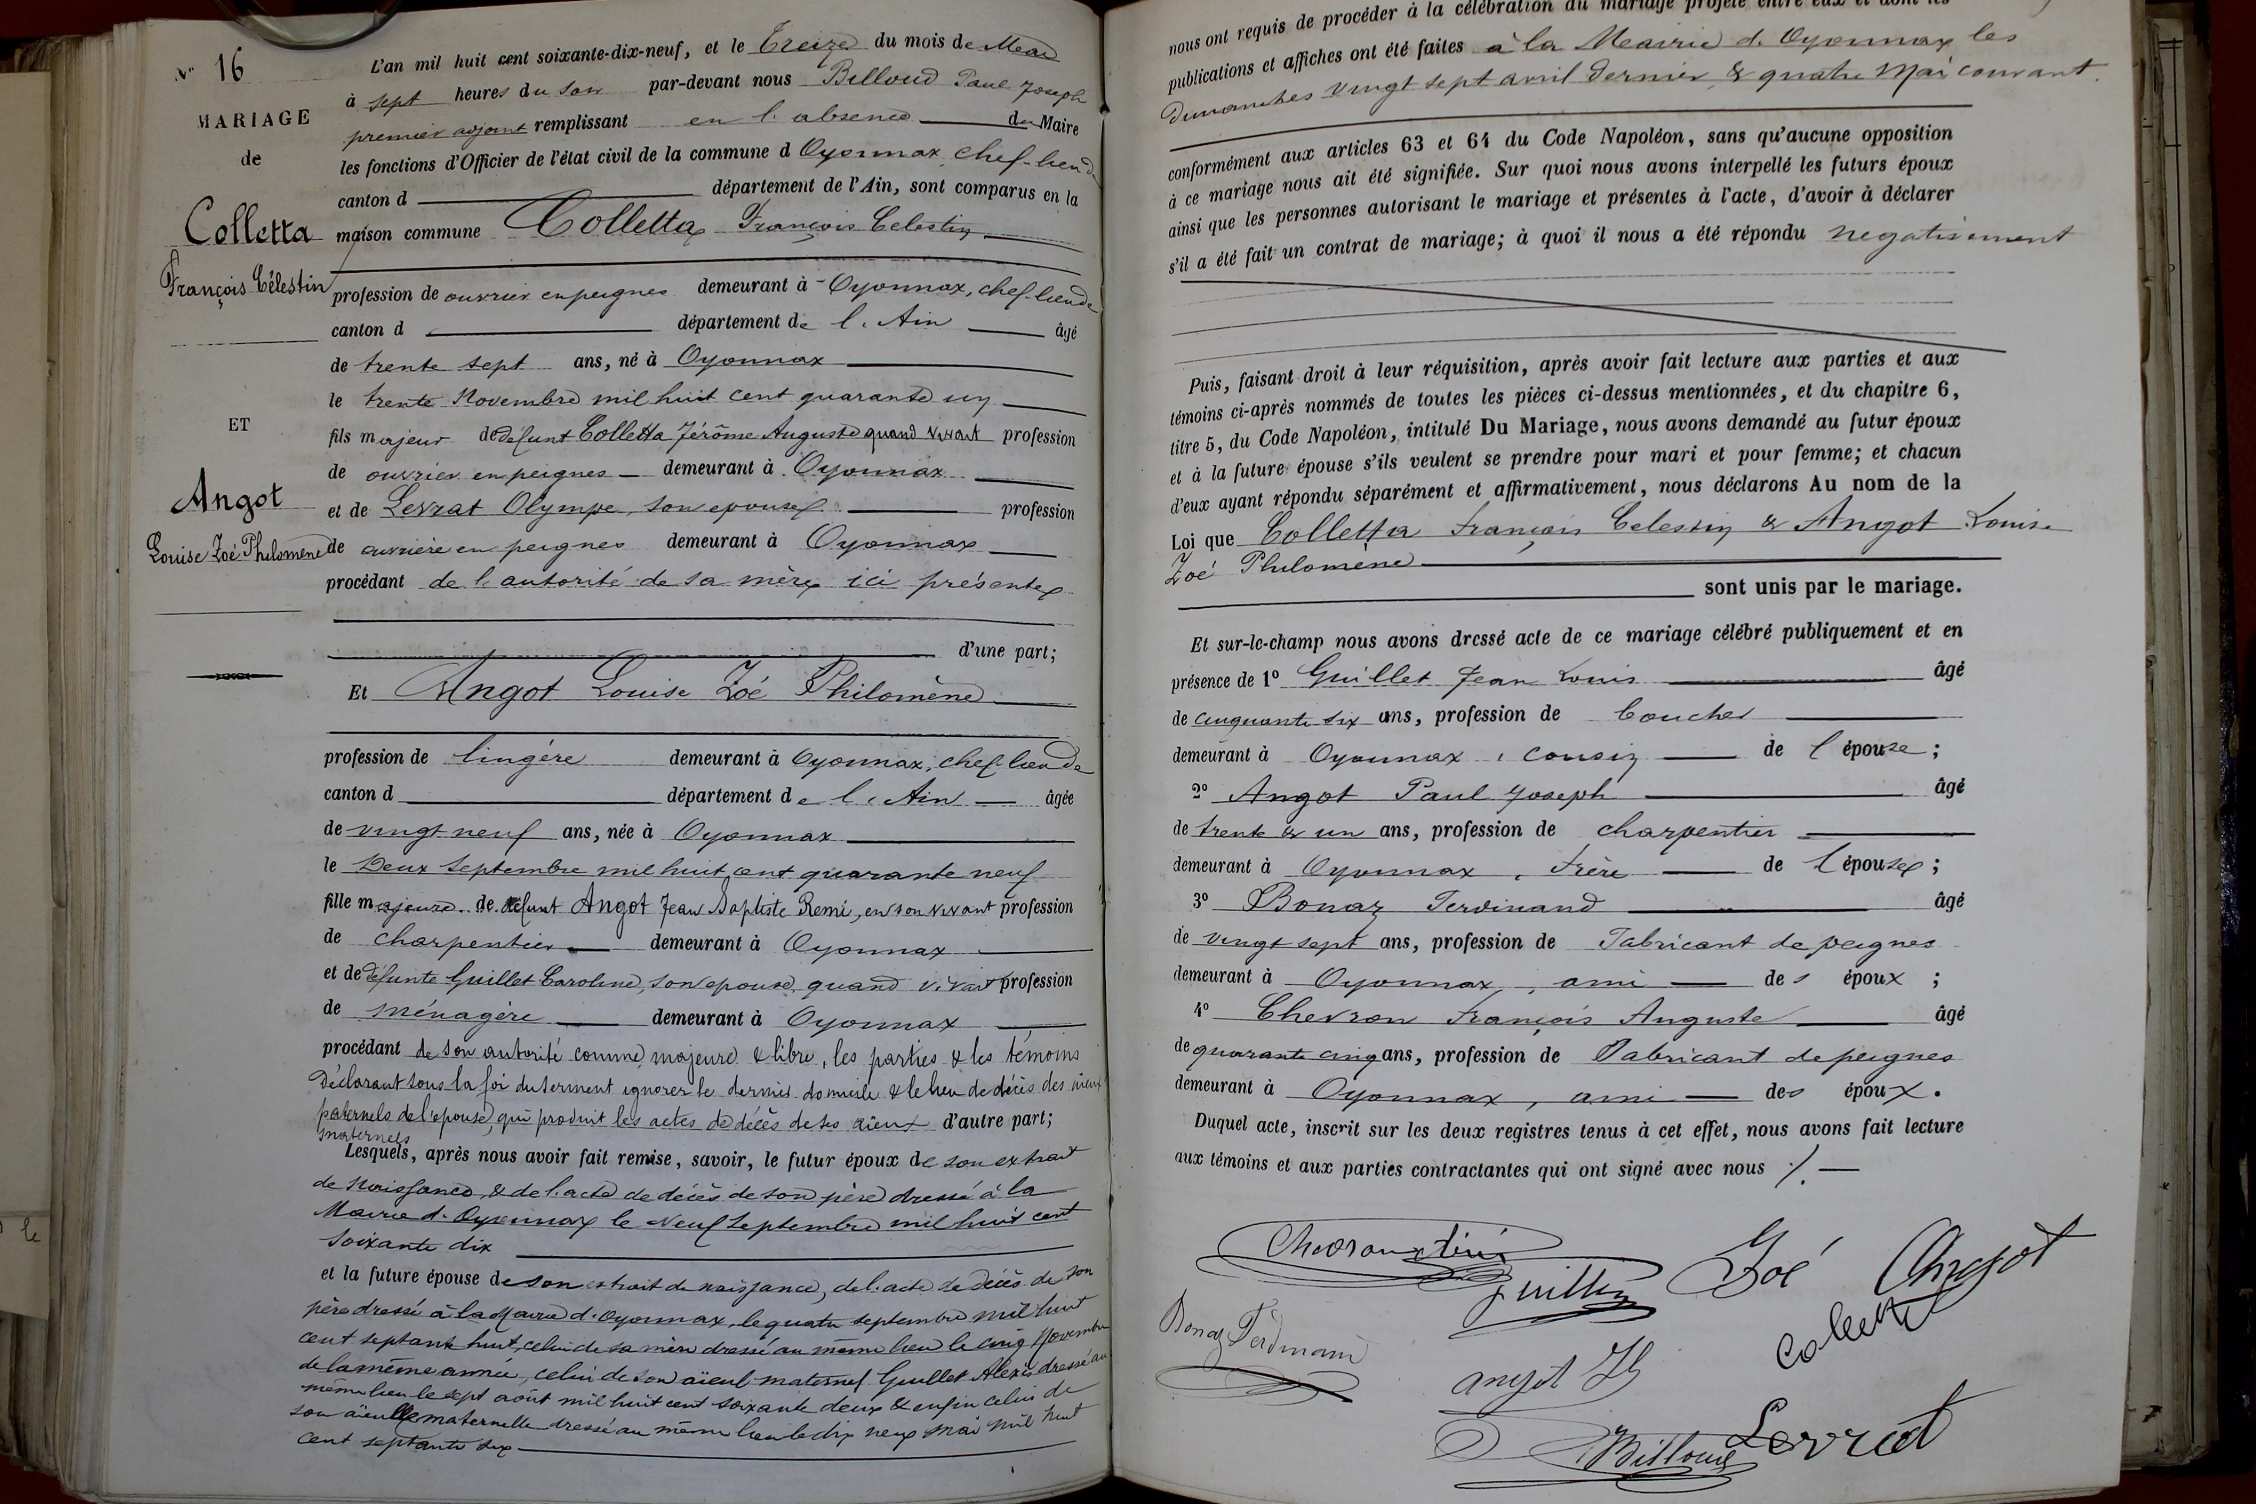 N° 16
MARIAGE
de
Colletta
François Célestin
ET
Angot
Louise Zoé Philomène
L'an mil huit cent soixante-dix-neuf, et le Treize du mois de Mai
à sept heures du soir par-devant nous Billoud Paul Joseph
premier adjoint remplissant en l'absence du Maire
les fonctions d'Officier de l'état civil de la commune d'Oyonnax, chef-lieu de
canton d département de l'Ain, sont comparus en la
maison commune Colletta François Celestin
profession de ouvrier en peignes demeurant à Oyonnax, chef-lieu de
canton d département de l'Ain âgé
de trente sept ans, né à Oyonnax
le trente Novembre mil huit cent quarante un
fils majeur de defunt Colletta Jérôme Auguste quand vivait profession
de ouvrier en peignes demeurant à Oyonnax
et de Levrat Olympe, son epouse profession
de ouvrière en peignes demeurant à Oyonnax
procédant de l'autorité de sa mère ici présente
d'une part;
Et Angot Louise Zoé Philomène
profession de lingère demeurant à Oyonnax, chef-lieu de
canton d département de l'Ain âgée
de vingt neuf ans, née à Oyonnax
le Deux Septembre mil huit cent quarante neuf
fille majeure de défunt Angot Jean Baptiste Remi, en son vivant profession
de charpentier demeurant à Oyonnax
et de défunte Guillet Caroline, son epouse, quand vivait profession
de ménagère demeurant à Oyonnax
procédant de son autorité comme majeure & libre, les parties & les témoins
Déclarant sous la foi du serment ignorer le dernier domicile & le lieu de décès des aïeux
paternels de l'epouse, qui produit les actes de décès de ses aïeux d'autre part;
maternels
Lesquels, après nous avoir fait remise, savoir, le futur époux de son extrait
de naissance, & de l'acte de décès de son père dressé à la
Mairie d'Oyonnax le Neuf Septembre mil huit cent
soixante dix
et la future épouse de son extrait de naissance, de l'acte de décès de son
père dressé à la Mairie d'Oyonnax, le quatre septembre mil huit
cent septante huit, celui de sa mère dressé au même lieu le cinq Novembre
de la même année, celui de son aïeul maternel Guillet Alexis dressé au
même lieu le sept août mil huit cent soixante deux & enfin celui de
son aïeulle maternelle dressé au même lieu le dix neuf mai mil huit
cent septante six
nous ont requis de procéder à la célébration du mariage projeté entre eux et dont les
publications et affiches ont été faites à la Mairie d'Oyonnax les
Dimanches vingt sept avril dernier & quatre Mai courant.
conformément aux articles 63 et 64 du Code Napoléon, sans qu'aucune opposition
à ce mariage nous ait été signifiée. Sur quoi nous avons interpellé les futurs époux
ainsi que les personnes autorisant le mariage et présentes à l'acte, d'avoir à déclarer
s'il a été fait un contrat de mariage; à quoi il nous a été répondu negativement
Puis, faisant droit à leur réquisition, après avoir fait lecture aux parties et aux
témoins ci-après nommés de toutes les pièces ci-dessus mentionnées, et du chapitre 6,
titre 5, du Code Napoléon, intitulé Du Mariage, nous avons demandé au futur époux
et à la future épouse s'ils veulent se prendre pour mari et pour femme; et chacun
d'eux ayant répondu séparément et affirmativement, nous déclarons Au nom de la
Loi que Colletta François Celestin & Angot Louise
Zoé Philomène
sont unis par le mariage.
Et sur-le-champ nous avons dressé acte de ce mariage célébré publiquement et en
présence de 1° Guillet Jean Louis âgé
de cinquante six ans, profession de boucher
demeurant à Oyonnax, cousin de l'épouse;
2° Angot Paul Joseph âgé
de trente & un ans, profession de charpentier
demeurant à Oyonnax, frère de l'épouse;
3° Bonaz Ferdinand âgé
de vingt sept ans, profession de Fabricant de peignes
demeurant à Oyonnax, ami des époux;
4° Chevron François Auguste âgé
de quarante cinq ans, profession de Fabricant de peignes
demeurant à Oyonnax, ami des époux.
Duquel acte, inscrit sur les deux registres tenus à cet effet, nous avons fait lecture
aux témoins et aux parties contractantes qui ont signé avec nous ./.
Guillet
Zoé Angot
Bonaz Ferdinand
Colletta
angot
Billoud
Levrat
le